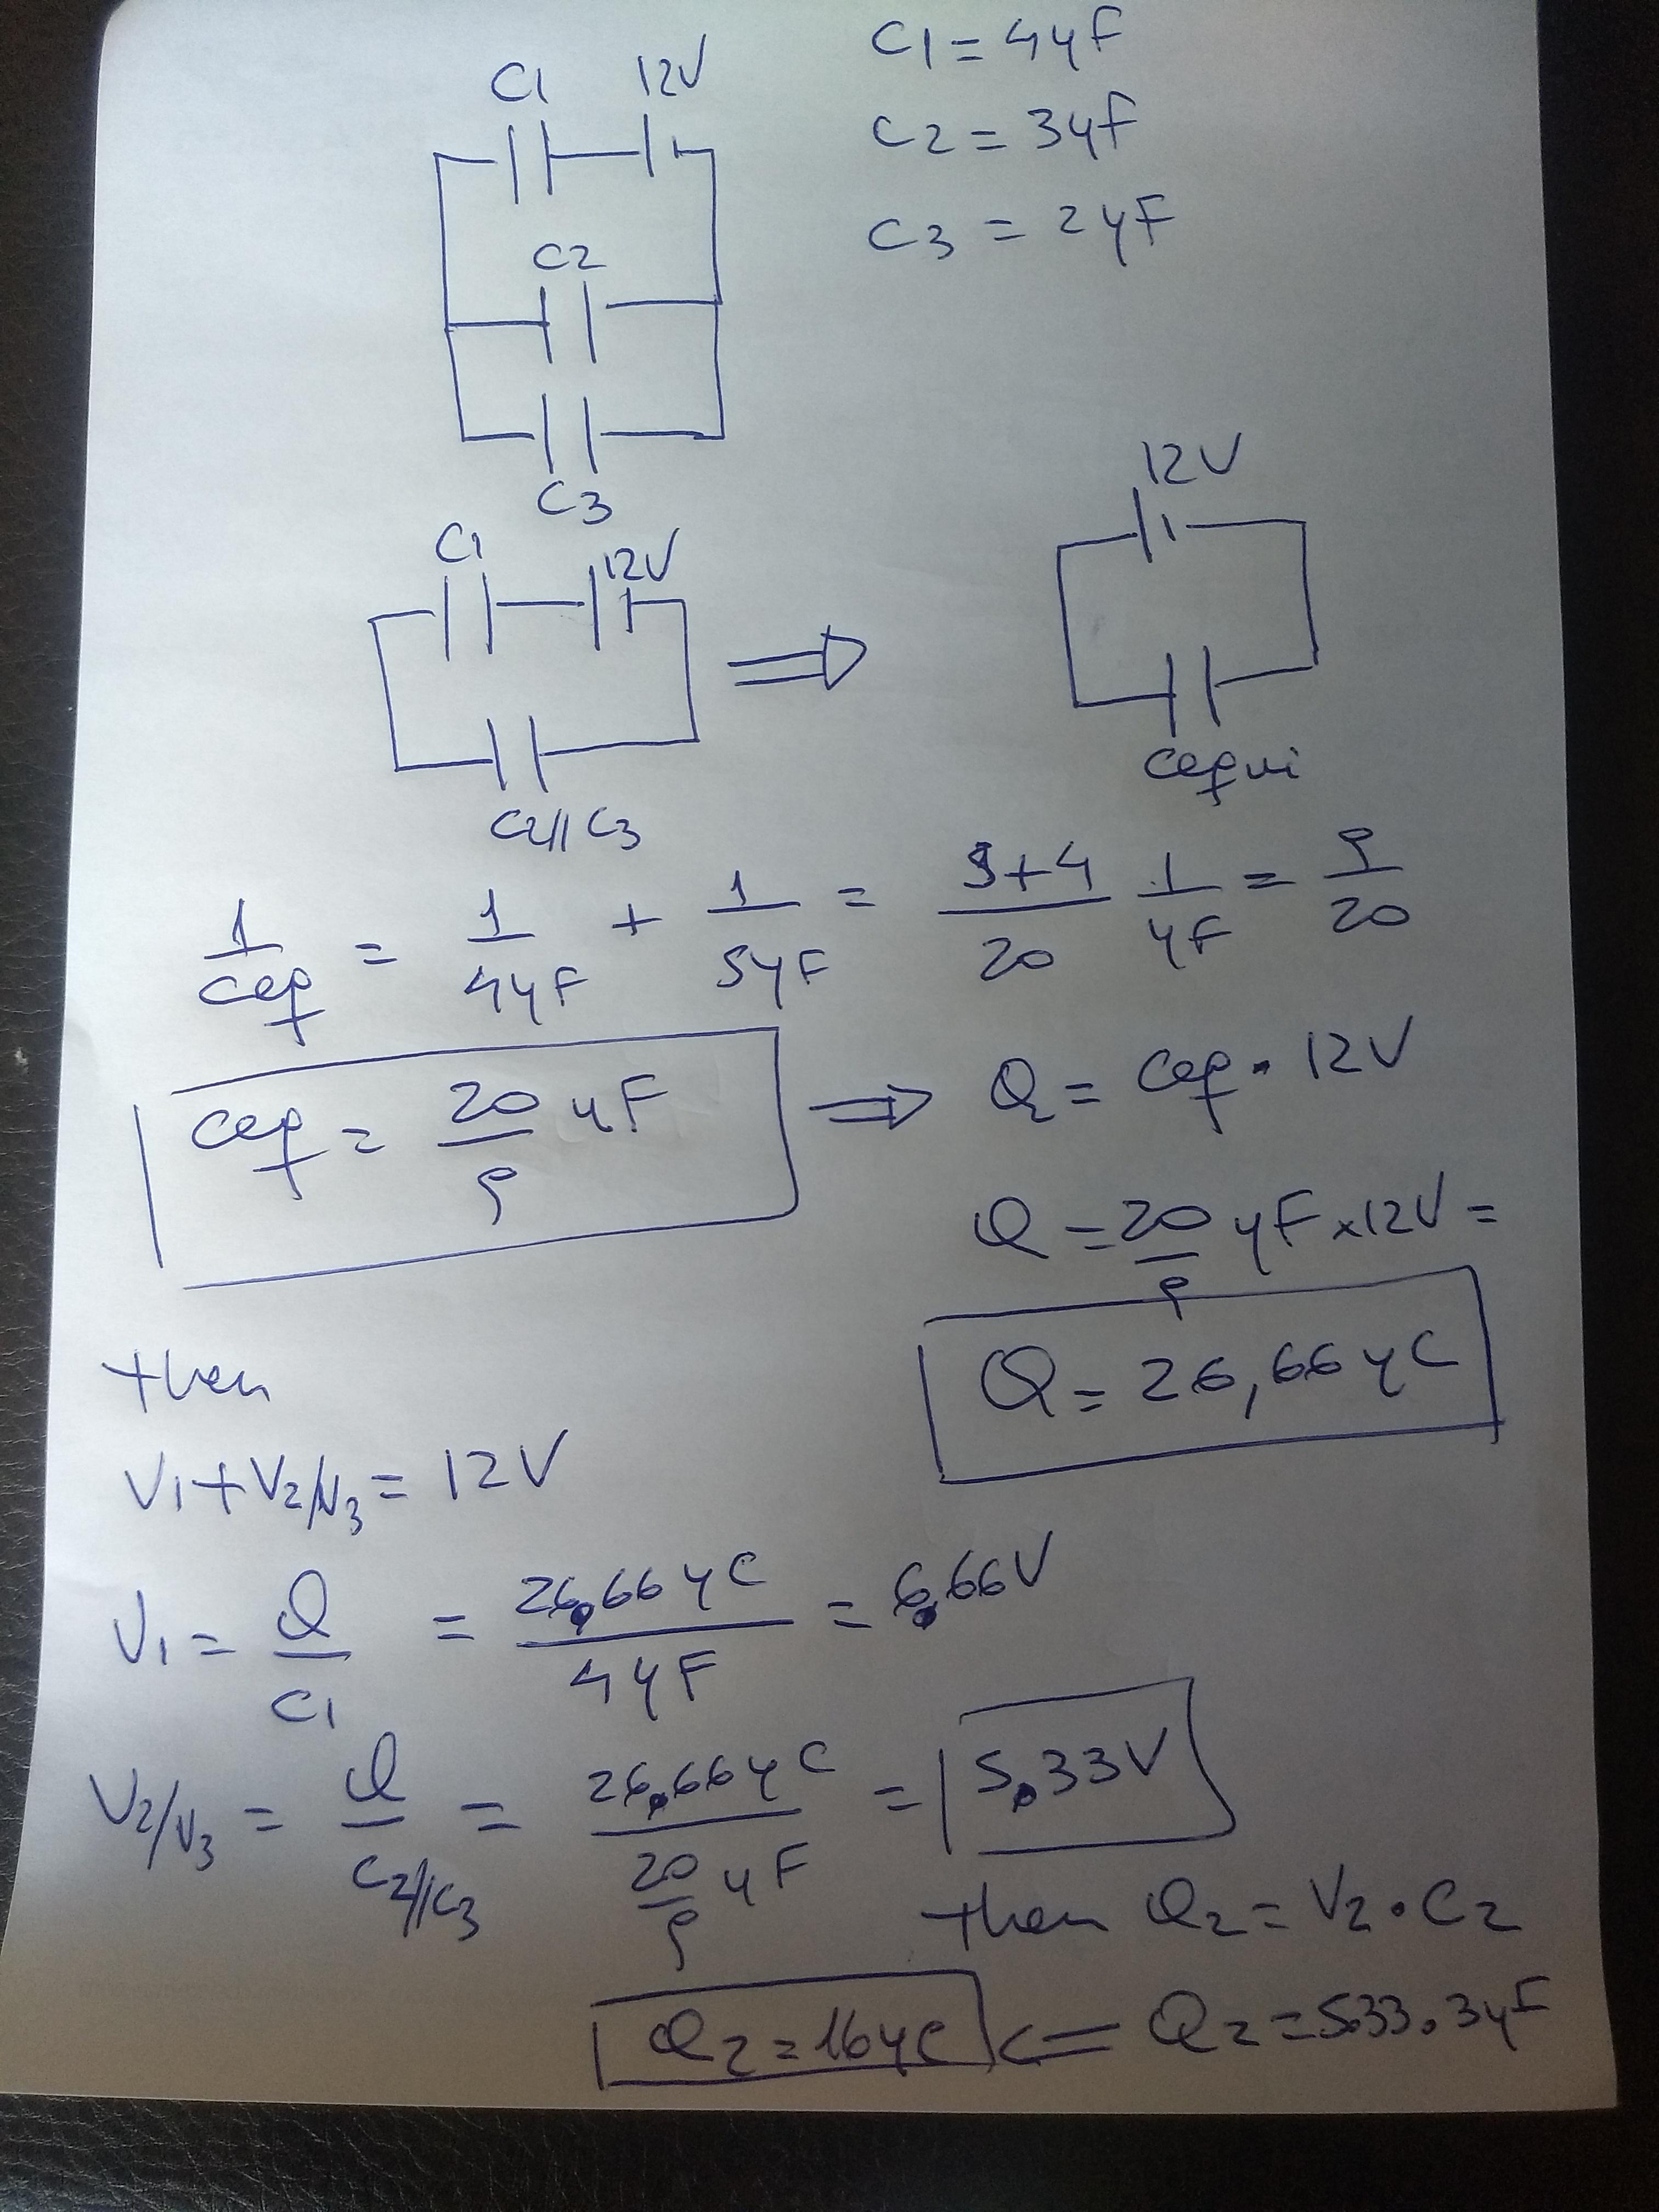 C1 12V C1 = 4μF
C2 = 3μF
C3 = 2μF
C2
C3
12V
C1 12V
Cequi
C2//C3
1/Ceq = 1/4μF + 1/5μF = 5+4/20 1/μF = 9/20
Ceq = 20/9 μF ⇒ Q = Ceq · 12V
Q = 20/9 μF x 12V =
Q = 26,66 μC
then
V1 + V2/V3 = 12V
V1 = Q/C1 = 26,66 μC/4μF = 6,66V
V2/V3 = Q/C2//C3 = 26,66 μC/20/9 μF = 5,33V
then Q2 = V2 · C2
Q2 = 16μC <= Q2 = 5.33 . 3μF